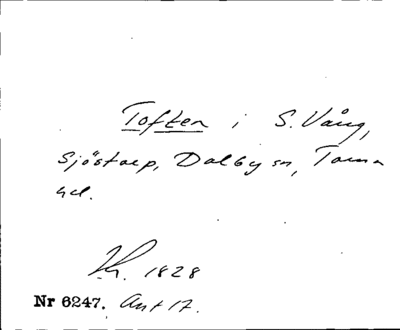 Toften i S. Vång,
Sjöstorp, Dalby sn, Torna
hd.
Kr. 1828
Nr 6247. Ant 17.